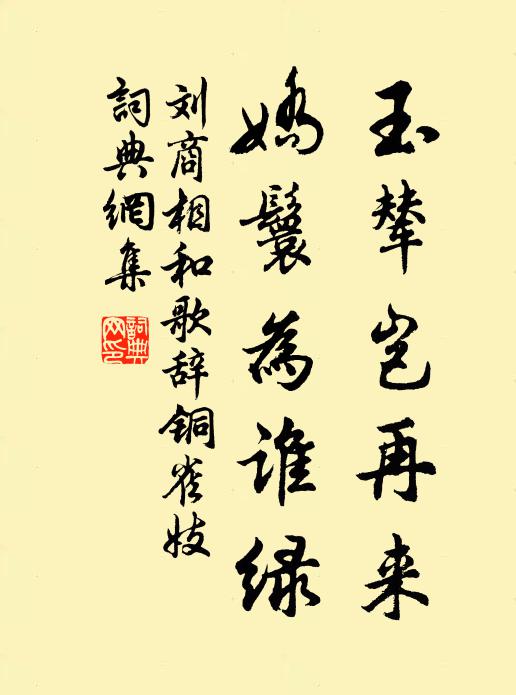 玉辇岂再来
娇鬟为谁绿
刘商相和歌辞铜雀妓
詞典網集
詞典网印